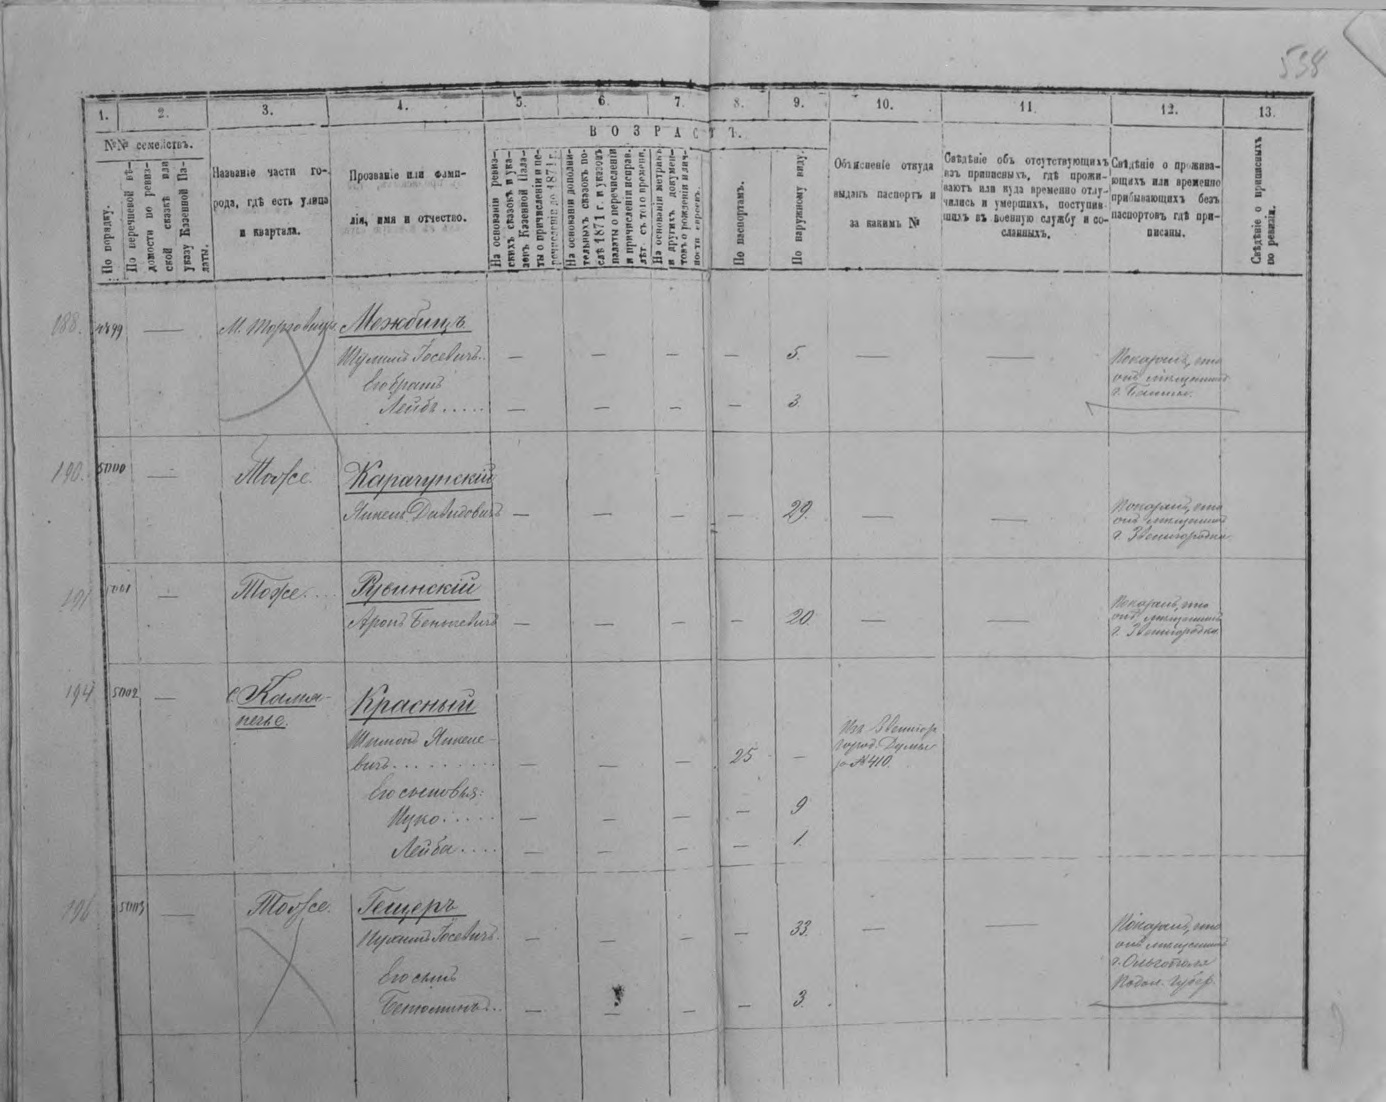 538
1. 2. 3. 4. 5. 6. 7. 8. 9. 10. 11. 12. 13.
№№ семействъ.
По порядку.
По перечневой вѣ-
домости по ревиз-
ской сказкѣ или
указу Казенной Па-
латы.
Названіе части го-
рода, гдѣ есть улица
и квартала.
Прозваніе или фами-
лія, имя и отчество.
ВОЗРАСТЪ.
На основаніи ревиз-
скихъ сказокъ и ука-
зовъ Казенной Пала-
ты о причисленіи и пе-
речисленіи до 1871 г.
На основаніи дополни-
тельныхъ сказокъ по-
слѣ 1871 г. и указовъ
палаты о перечисленіи
и причисленіи исправ.
лѣт. съ того времени.
На основаніи метрикъ
и другихъ докумен-
товъ о рожденіи и лич-
ности евреевъ.
По паспортамъ.
По наружному виду.
Объясненіе откуда
выданъ паспортъ и
за какимъ №
Свѣдѣніе объ отсутствующихъ
изъ приписныхъ, гдѣ прожи-
ваютъ или куда временно отлу-
чились и умершихъ, поступив-
шихъ въ военную службу и со-
сланныхъ.
Свѣдѣніе о прожива-
ющихъ или временно
прибывающихъ безъ
паспортовъ гдѣ при-
писаны.
Свѣдѣніе о приписныхъ
по ревизіи.
188. 4499 — М. Торговица Межбицъ
Шулимъ Іосевичъ — — — — 5. — — Показалъ, что
Его братъ онъ мѣщанинъ
Лейбъ..... — — — — 3.
190. 5000 — Тоже. Карачунскій
Янкель Давидовичъ — — — — 29. — — Показалъ, что
онъ мѣщанинъ
г. Звенигородка
191 5001 — Тоже... Рувинскій
Аронъ Беньевичъ — — — — 20. — — Показалъ, что
онъ мѣщанинъ
г. Звенигородка
194 5002 — с. Камя- Красный
нечье.
Шлиома Янкеле- Изъ Звенигор.
вичъ......... — — — 25 — город. Думы
за № 410.
Его сыновья:
Ицко..... — — — — 9
Лейба.... — — — — 1.
196 5003 — Тоже. Гещеръ
Нухимъ Іосевичъ. — — — — 33. — — Показалъ, что
онъ мѣщанинъ
Его сынъ г. Ольгополя
Беньюминъ.. — — — — 3. Подол. губер.